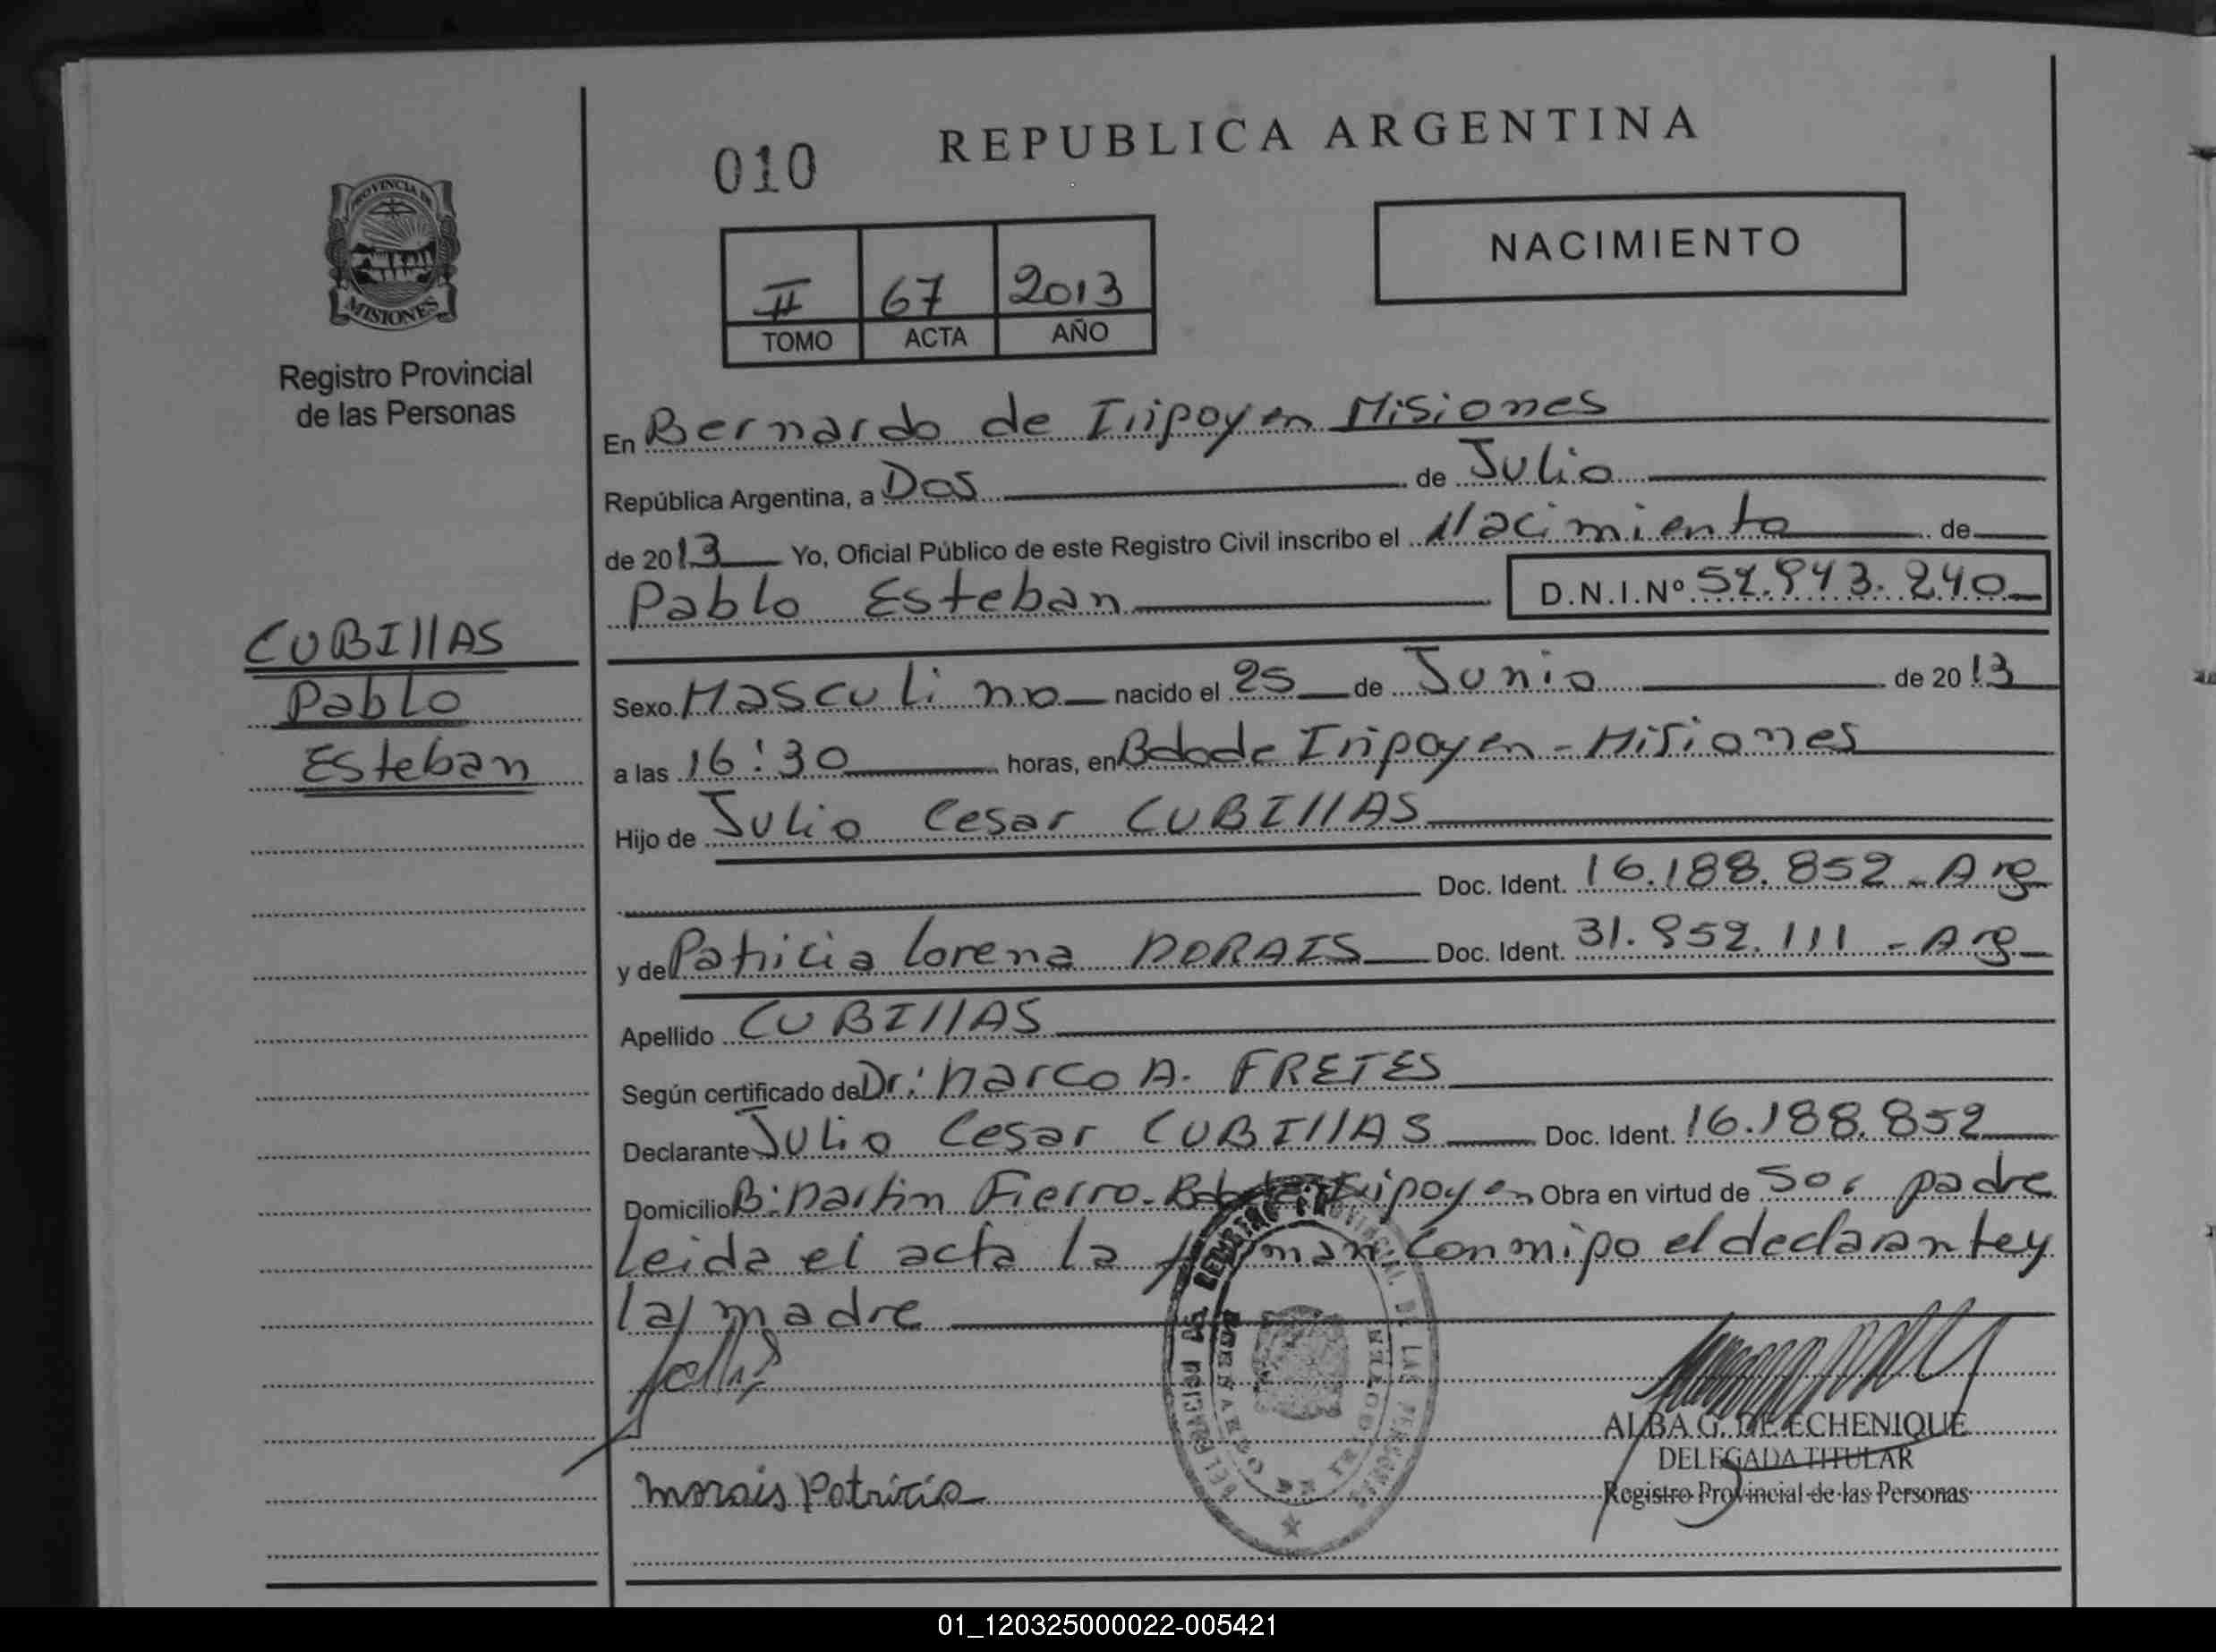 010
REPUBLICA ARGENTINA
NACIMIENTO
II 67 2013
TOMO ACTA AÑO
PROVINCIA DE
MISIONES
Registro Provincial
de las Personas
En Bernardo de Iripoyen Misiones
República Argentina, a Dos de Julio
de 2013 Yo, Oficial Público de este Registro Civil inscribo el Nacimiento de
Pablo Esteban D.N.I.Nº
CUBIllAS
Pablo
Esteban
Sexo Masculino nacido el 25 de Junio de 2013
a las 16:30 horas, en Bdo de Iripoyen - Misiones
Hijo de Julio Cesar CUBIllAS
Doc. Ident. 16.188.852 - Arg
y de Patricia Lorena MORAIS Doc. Ident. 31.952.111 - Arg
Apellido CUBIllAS
Según certificado de Dr: Marco A. FRETES
Declarante Julio Cesar CUBIllAS Doc. Ident. 16.188.852
Domicilio B: Martin Fierro - Bdo de Iripoyen Obra en virtud de Ser padre
Leida el acta la firman conmigo el declarante y
la madre
Morais Patricia
ALBA G. DE ECHENIQUE
DELEGADA TITULAR
Registro Provincial de las Personas
01_120325000022-005421